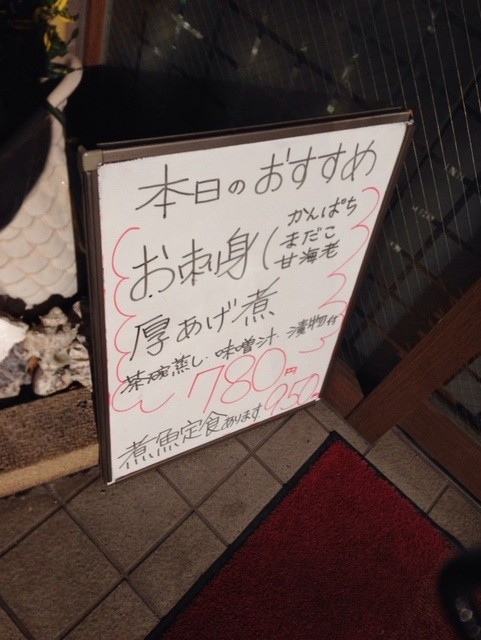 本日のおすすめ
お刺身(かんぱち
まだこ
甘海老
厚あげ煮
茶碗蒸し・味噌汁・漬物付
780円
煮魚定食あります 950円